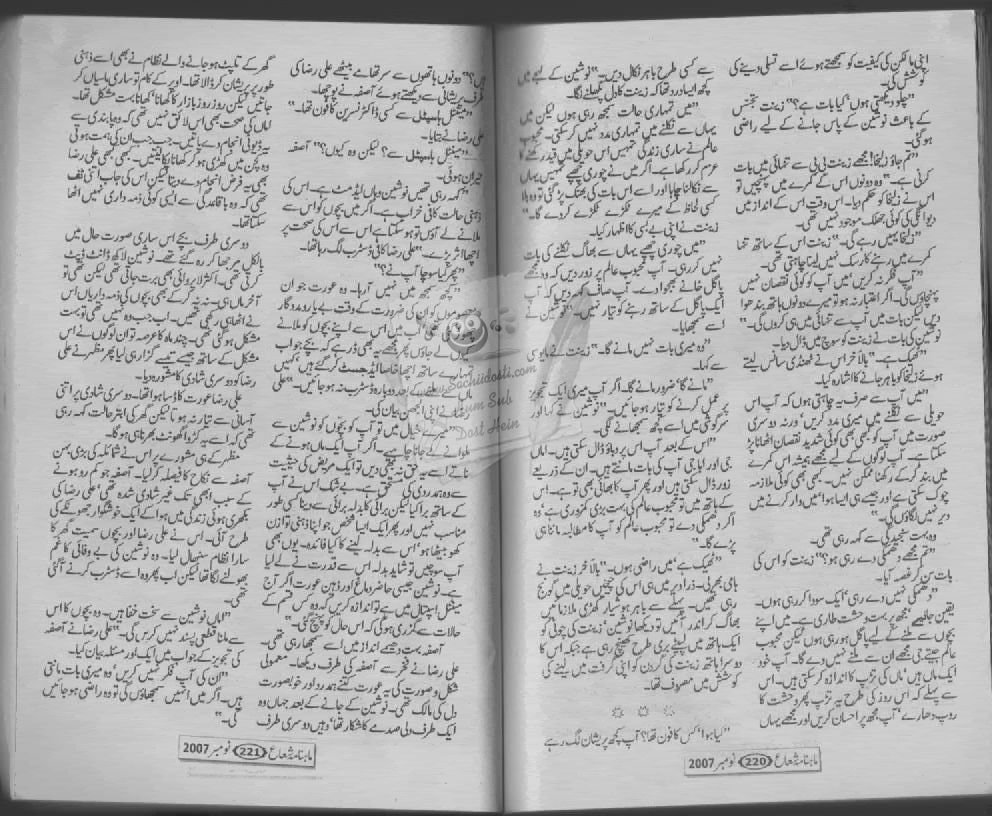 اپنی مالکن کی کیفیت کو سمجھتے ہوئے اسے تسلی دینے کی
کوشش کی۔
"چلو دیکھتی ہوں کیا بات ہے؟" زینت تجسّس
کے باعث نوشین کے پاس جانے کے لیے راضی
ہو گئی۔
"تم جاؤ زلیخا! مجھے زینت بی بی سے تنہائی میں بات
کرنی ہے۔" وہ دونوں اس کے کمرے میں پہنچیں تو
اس نے زلیخا کو حکم دیا۔ اس وقت اس کے انداز میں
دیوانگی کی کوئی جھلک موجود نہیں تھی۔
"زلیخا یہیں رہے گی۔" زینت اس کے ساتھ تنہا
کمرے میں رہنے کا رسک نہیں لینا چاہتی تھی۔
"آپ فکر نہ کریں میں آپ کو کوئی نقصان نہیں
پہنچاؤں گی۔ اگر اعتبار نہ ہو تو میرے دونوں ہاتھ بندھوا
دیں لیکن بات میں آپ سے تنہائی میں ہی کروں گی۔"
نوشین کی بات نے زینت کو سوچ میں ڈال دیا۔
"ٹھیک ہے۔" بالآخر اس نے ٹھنڈی سانس لیتے
ہوئے زلیخا کو باہر جانے کا اشارہ کیا۔
"میں آپ سے صرف یہ چاہتی ہوں کہ آپ اس
حویلی سے نکلنے میں میری مدد کریں ورنہ دوسری
صورت میں آپ کو کبھی بھی کوئی شدید نقصان اٹھانا پڑ
سکتا ہے۔ آپ لوگوں کے لیے مجھے ہمیشہ اس کمرے
میں بند کر کے رکھنا ممکن نہیں۔ کبھی بھی کوئی ملازمہ
چوک سکتی ہے اور جیسے ہی ایسا ہوا میں وار کرنے میں
دیر نہیں لگاؤں گی۔"
وہ بہت سنجیدگی سے کہہ رہی تھی۔
"تم مجھے دھمکی دے رہی ہو؟" زینت کو اس کی
بات سن کر غصہ آیا۔
"دھمکی نہیں دے رہی ایک سودا کر رہی ہوں۔
یقین جانیے مجھ پر بہت وحشت طاری ہے۔ میں اپنے
بچوں سے ملنے کے لیے پاگل ہو رہی ہوں لیکن محبوب
عالم جیتے جی مجھے ان سے ملنے نہیں دے گا۔ آپ خود
ایک ماں ہیں ماں کی تڑپ کا اندازہ کر سکتی ہیں۔ اس
سے پہلے کہ اس روز کی طرح یہ تڑپ پھر وحشت کا
روپ دھارے، آپ مجھ پر احسان کریں اور مجھے یہاں
سے کسی طرح باہر نکال دیں۔" نوشین کے لہجے میں
کچھ ایسا درد تھا کہ زینت کا دل پگھلنے لگا۔
"میں تمہاری حالت سمجھ رہی ہوں لیکن میں
یہاں سے نکلنے میں تمہاری مدد نہیں کر سکتی۔ محبوب
عالم نے ساری زندگی تمہیں اس حویلی میں قید رکھنے کا
عزم کر رکھا ہے۔ اگر میں نے چوری چھپے تمہیں یہاں
سے نکالنا چاہا اور اسے اس بات کی بھنک پڑ گئی تو وہ بلا
کسی لحاظ کے میرے ٹکڑے ٹکڑے کر دے گا۔"
زینت نے اپنی بے بسی کا اظہار کیا۔
"میں چوری چھپے یہاں سے بھاگ نکلنے کی بات
نہیں کر رہی۔ آپ محبوب عالم پر زور دیں کہ وہ مجھے
پاگل خانے بھجوا دے۔ آپ صاف کہہ دیں کہ آپ
ایک پاگل کے ساتھ رہنے کو تیار نہیں۔" نوشین نے
اسے سمجھایا۔
"وہ میری بات نہیں مانے گا۔" زینت نے مایوسی
سے کہا۔
"مانے گا ضرور مانے گا۔ اگر آپ میری ایک تجویز
پر عمل کرنے کو تیار ہو جائیں۔" نوشین نے کہا اور
سرگوشی میں اسے کچھ سمجھانے لگی۔
"اس کے بعد آپ اس پر دباؤ ڈال سکتی ہیں۔ اماں
جی اور ابا جی آپ کی بات مانتے ہیں۔ ان کے ذریعے
زور ڈال سکتی ہیں اور پھر آپ کا بھائی بھی تو ہے۔ اس
کے ہاتھ میں تو محبوب عالم کی بہت بڑی کمزوری ہے وہ
اگر دھمکی دے تو محبوب عالم کو آپ کا مطالبہ ماننا ہی
پڑے گا۔"
"ٹھیک ہے میں راضی ہوں۔" بالآخر زینت نے
ہامی بھر لی۔ ذرا دیر میں ہی اس کی چیخیں حویلی میں گونج
رہی تھیں۔ پہلے سے باہر ہوشیار کھڑی ملازمائیں
بھاگ کر اندر آئیں تو دیکھا نوشین زینت کی چوٹی کو
ایک ہاتھ میں لپیٹے بری طرح کھینچ رہی ہے جبکہ اس کا
دوسرا ہاتھ زینت کی گردن کو اپنی گرفت میں لینے کی
کوشش میں مصروف تھا۔
☼ ☼ ☼
"کیا ہوا کس کا فون تھا؟ آپ کچھ پریشان لگ رہے
ماہنامہ شعاع 220 نومبر 2007
ہیں؟" دونوں ہاتھوں سے سر تھامے بیٹھے علی رضا کی
طرف پریشانی سے دیکھتے ہوئے آصفہ نے پوچھا۔
"مینٹل ہاسپٹل سے کسی ڈاکٹر نسرین کا فون تھا۔"
علی رضا نے بتایا۔
"مینٹل ہاسپٹل سے؟ لیکن وہ کیوں؟" آصفہ
حیران ہوئی۔
"کہہ رہی تھیں نوشین وہاں ایڈمٹ ہے۔ اس کی
ذہنی حالت کافی خراب ہے۔ اگر میں بچوں کو اس سے
ملانے لے آؤں تو ہو سکتا ہے اس سے اس کی صحت پر
اچھا اثر پڑے۔" علی رضا کافی ڈسٹرب لگ رہا تھا۔
"پھر کیا سوچا آپ نے؟"
"کچھ سمجھ میں نہیں آ رہا۔ وہ عورت جو ان
معصوموں کو ان کی ضرورت کے وقت بے یار و مددگار
چھوڑ گئی تھی اب میں اس سے اپنے بچوں کو ملانے
کیوں لے جاؤں پھر مجھے یہ بھی ڈر ہے کہ بچے جو اب
تمہارے ساتھ اچھا خاصا ایڈجسٹ کر گئے ہیں کہیں
ماں سے ملنے کے بعد دوبارہ ڈسٹرب نہ ہو جائیں۔" علی
رضا نے اپنی الجھن بیان کی۔
"میرے خیال میں تو آپ کو بچوں کو نوشین سے
ملوانے لے جانا چاہیے۔ اگر آپ ایک ماں ہونے کے
ناتے اسے یہ حق نہیں بھی دیں تو ایک مریض کی حیثیت
سے وہ ہمدردی کی مستحق ہے۔ بے شک اس نے آپ
کے ساتھ برا کیا لیکن برائی کا بدلہ برائی سے دینا کسی طور
مناسب نہیں اور پھر ایک ایسا شخص جو اپنا ذہنی توازن
کھو بیٹھا ہو اس سے بدلہ لینے کا کیا فائدہ۔ یوں بھی
آپ سوچیں تو شاید بدلہ اس سے قدرت نے لے لیا
ہے۔ نوشین جیسی حاضر دماغ اور ذہین عورت اگر آج
مینٹل اسپتال میں ہے تو اندازہ کریں کہ وہ کس قسم کے
حالات سے گزری ہو گی کہ اس حال کو پہنچ گئی۔"
آصفہ بہت دھیمے انداز میں اسے سمجھا رہی تھی۔
علی رضا نے فخر سے آصفہ کی طرف دیکھا۔ معمولی
شکل و صورت کی یہ عورت کتنے ہمدرد اور خوبصورت
دل کی مالک تھی۔ نوشین کے جانے کے بعد جہاں وہ
ایک طرف دلی صدمے کا شکار تھا وہیں دوسری طرف
گھر کے تلپٹ ہو جانے والے نظام نے بھی اسے ذہنی
طور پر پریشان کر ڈالا تھا۔ اوپر کے کام تو ساری ماسیاں کر
جاتیں لیکن روز روز بازار کا کھانا کھانا بہت مشکل تھا۔
اماں کی صحت بھی اس لائق نہیں تھی کہ وہ پابندی سے
یہ ڈیوٹی انجام دے پاتیں۔ جب جب ان کی ہمت ہوتی
وہ کچن میں کھڑی ہو کر کھانا پکا لیتیں۔ کبھی کبھی علی رضا
بھی یہ فرض انجام دے دیتا لیکن اس کی جاب اتنی ٹف
تھی کہ وہ باقاعدگی سے ایسی کوئی ذمہ داری نہیں اٹھا
سکتا تھا۔
دوسری طرف بچے اس ساری صورت حال میں
بالکل مرجھا کر رہ گئے تھے۔ نوشین لاکھ ڈانٹ ڈپٹ
کرتی تھی۔ اکثر لاپروائی بھی برت جاتی تھی لیکن تھی تو
آخر ماں ہی۔ نہ نہ کر کے بھی بچوں کی ذمہ داریاں اس
نے اٹھا ہی رکھی تھیں۔ اب جب وہ نہیں تھی تو بہت
مشکل ہو گئی تھی۔ چند ماہ کا عرصہ تو ان لوگوں نے اس
مشکل کے ساتھ جیسے تیسے گزار ہی لیا پھر مظہر نے علی
رضا کو دوسری شادی کا مشورہ دیا۔
علی رضا عورت کا ڈسا ہوا تھا۔ دوسری شادی پر اتنی
آسانی سے تیار نہ ہوتا لیکن گھر کی ابتر حالت کہہ رہی
تھی کہ اسے یہ کڑوا گھونٹ بھرنا ہی ہو گا۔
مظہر کے ہی مشورے پر اس نے شائلہ کی بڑی بہن
آصفہ سے نکاح کا فیصلہ کر لیا۔ آصفہ جو کم رو ہونے
کے سبب ابھی تک غیر شادی شدہ تھی علی رضا کی
بکھری ہوئی زندگی میں ہوا کے ایک خوشگوار جھونکے کی
طرح آئی۔ اس نے علی رضا اور بچوں سمیت گھر کا
سارا نظام سنبھال لیا۔ وہ نوشین کی بے وفائی کا غم
بھولنے لگا تھا لیکن اب پھر وہ اسے ڈسٹرب کرنے آ گئی
تھی۔
"اماں نوشین سے سخت خفا ہیں۔ وہ بچوں کا اس
سے ملنا قطعی پسند نہیں کریں گی۔" علی رضا نے آصفہ
کی تجویز کے جواب میں ایک اور مسئلہ بیان کیا۔
"ان کی آپ فکر نہیں کریں وہ میری بات مانتی
ہیں۔ اگر میں انہیں سمجھاؤں گی تو وہ راضی ہو جائیں
گی۔"
ماہنامہ شعاع 221 نومبر 2007
Sachiidosti.com
Hum Sub
Dost Hein